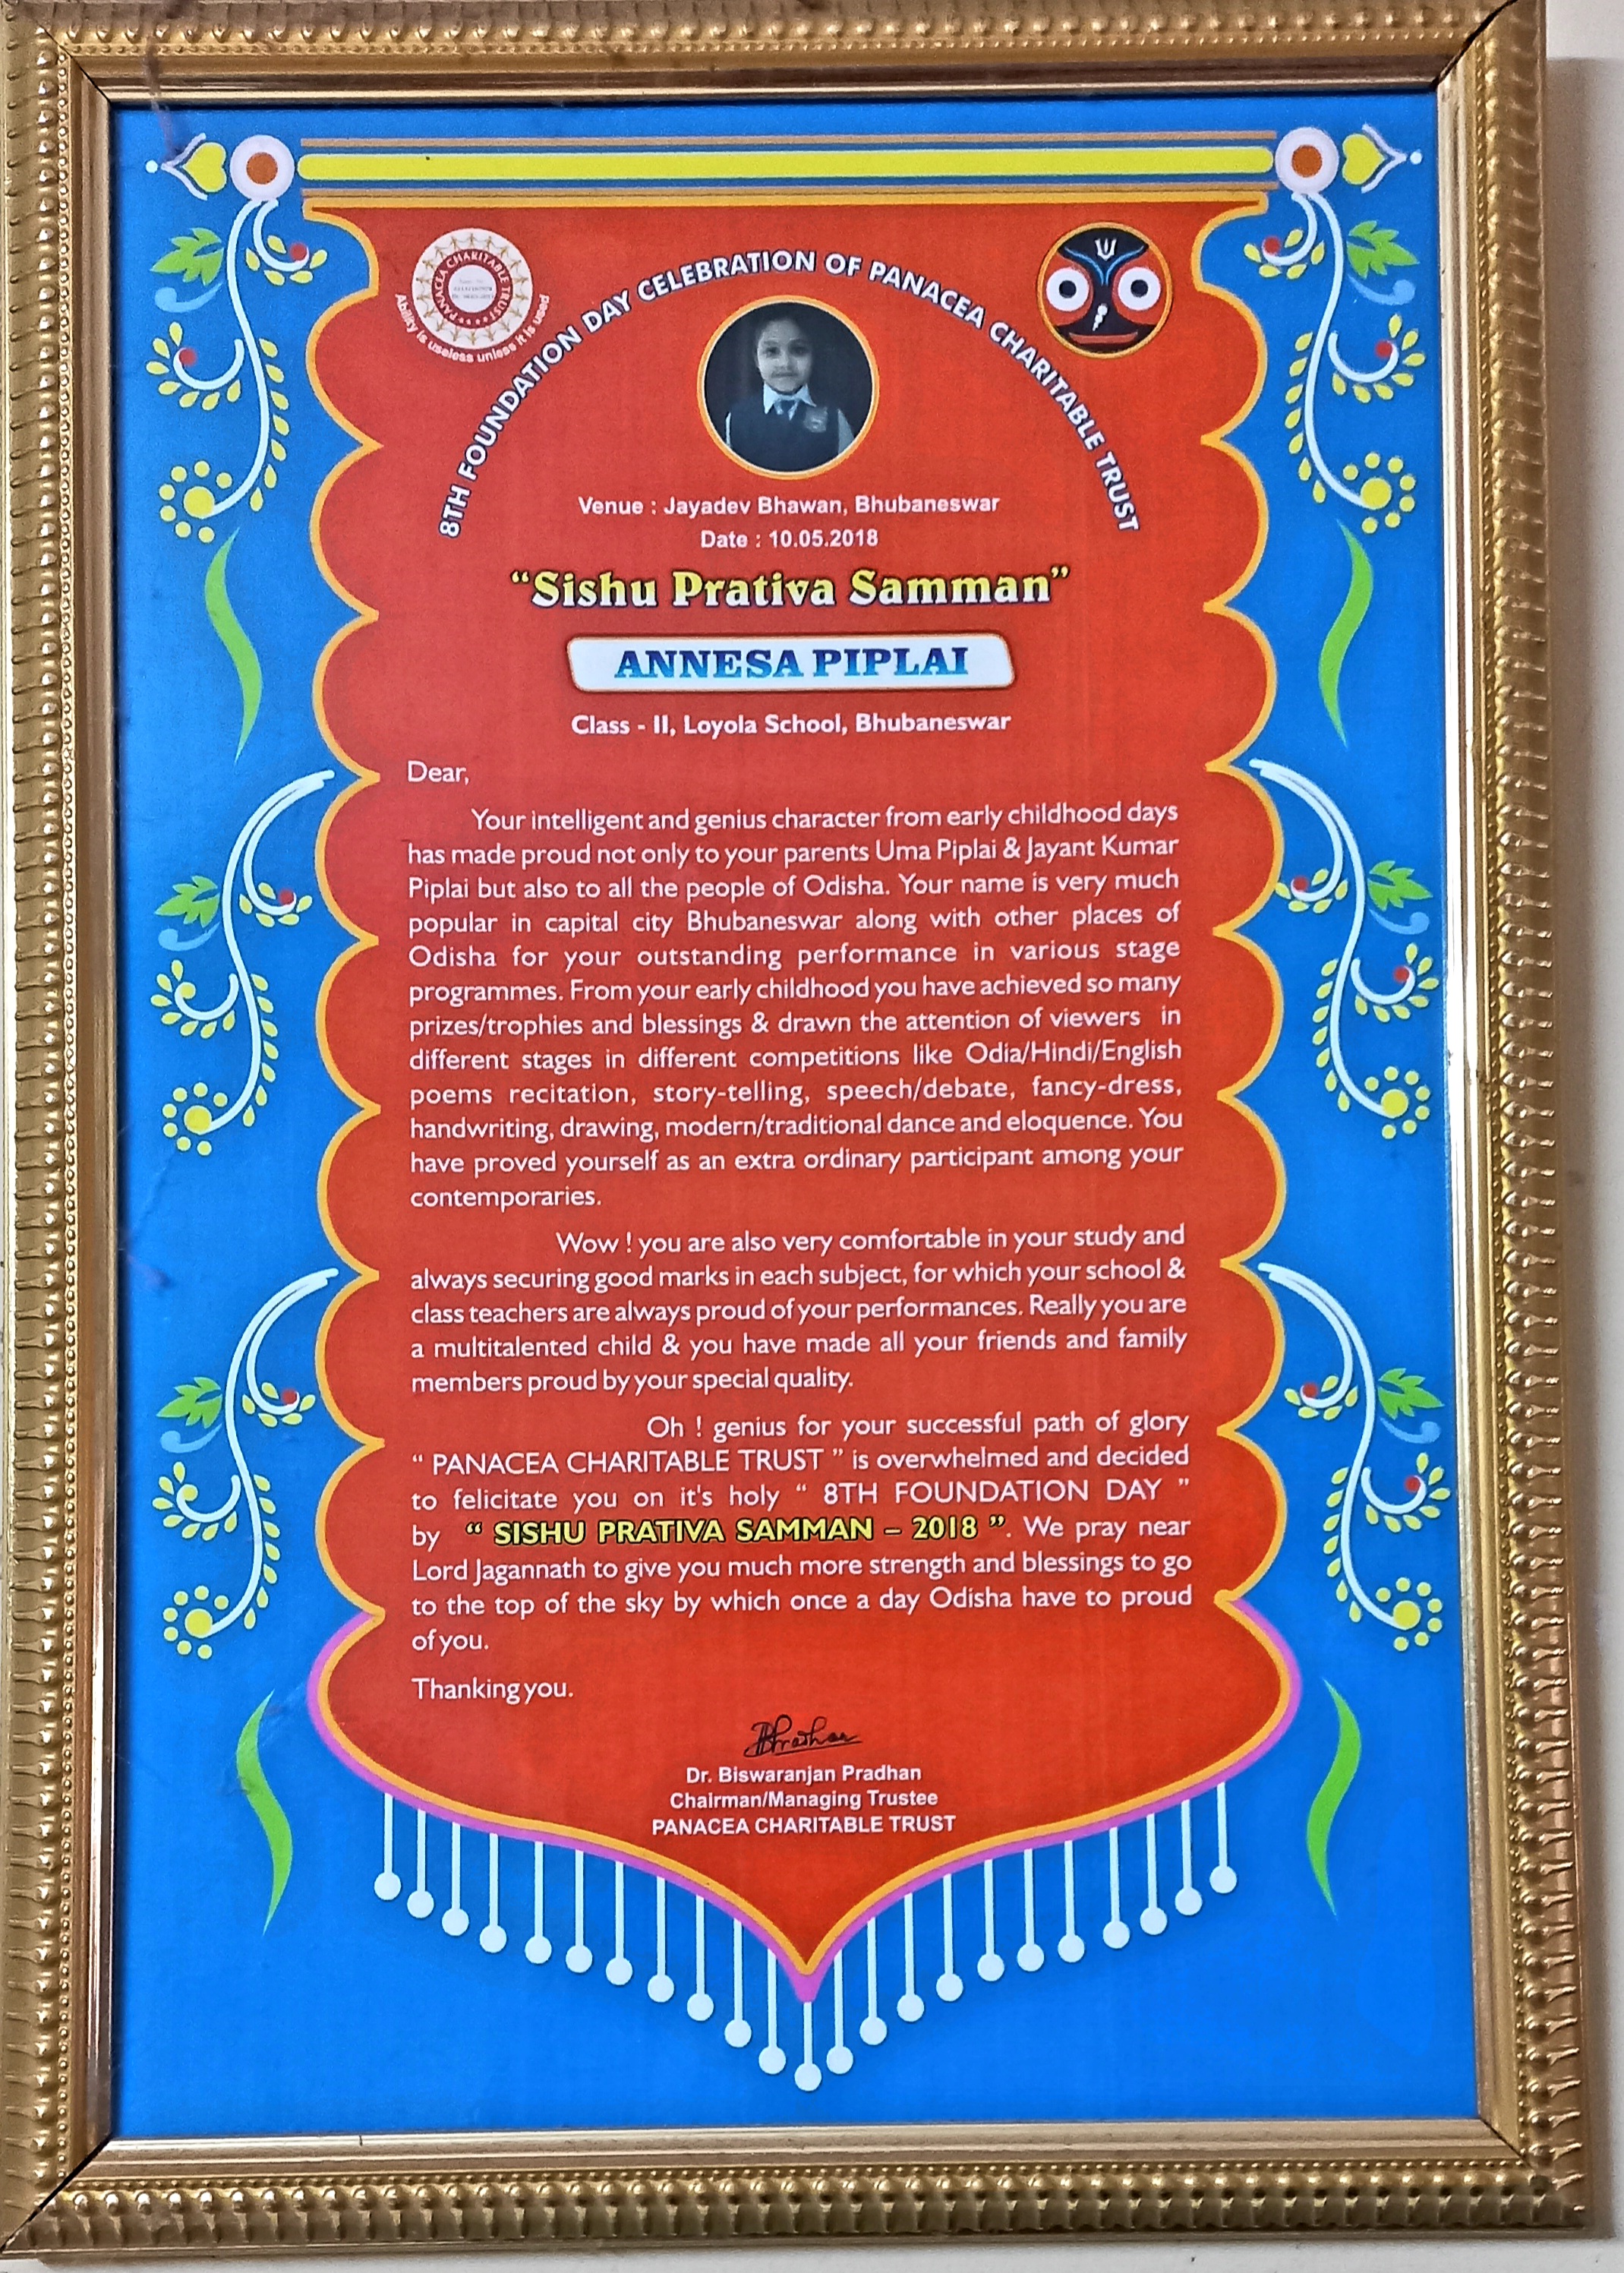 PANACEA CHARITABLE TRUST
Ability is useless unless it is used
8TH FOUNDATION DAY CELEBRATION OF PANACEA CHARITABLE TRUST
Venue : Jayadev Bhawan, Bhubaneswar
Date : 10.05.2018
“Sishu Prativa Samman”
ANNESA PIPLAI
Class - II, Loyola School, Bhubaneswar
Dear,
Your intelligent and genius character from early childhood days
has made proud not only to your parents Uma Piplai & Jayant Kumar
Piplai but also to all the people of Odisha. Your name is very much
popular in capital city Bhubaneswar along with other places of
Odisha for your outstanding performance in various stage
programmes. From your early childhood you have achieved so many
prizes/trophies and blessings & drawn the attention of viewers in
different stages in different competitions like Odia/Hindi/English
poems recitation, story-telling, speech/debate, fancy-dress,
handwriting, drawing, modern/traditional dance and eloquence. You
have proved yourself as an extra ordinary participant among your
contemporaries.
Wow ! you are also very comfortable in your study and
always securing good marks in each subject, for which your school &
class teachers are always proud of your performances. Really you are
a multitalented child & you have made all your friends and family
members proud by your special quality.
Oh ! genius for your successful path of glory
“ PANACEA CHARITABLE TRUST ” is overwhelmed and decided
to felicitate you on it's holy “ 8TH FOUNDATION DAY ”
by “ SISHU PRATIVA SAMMAN – 2018 ”. We pray near
Lord Jagannath to give you much more strength and blessings to go
to the top of the sky by which once a day Odisha have to proud
of you.
Thanking you.
Dr. Biswaranjan Pradhan
Chairman/Managing Trustee
PANACEA CHARITABLE TRUST